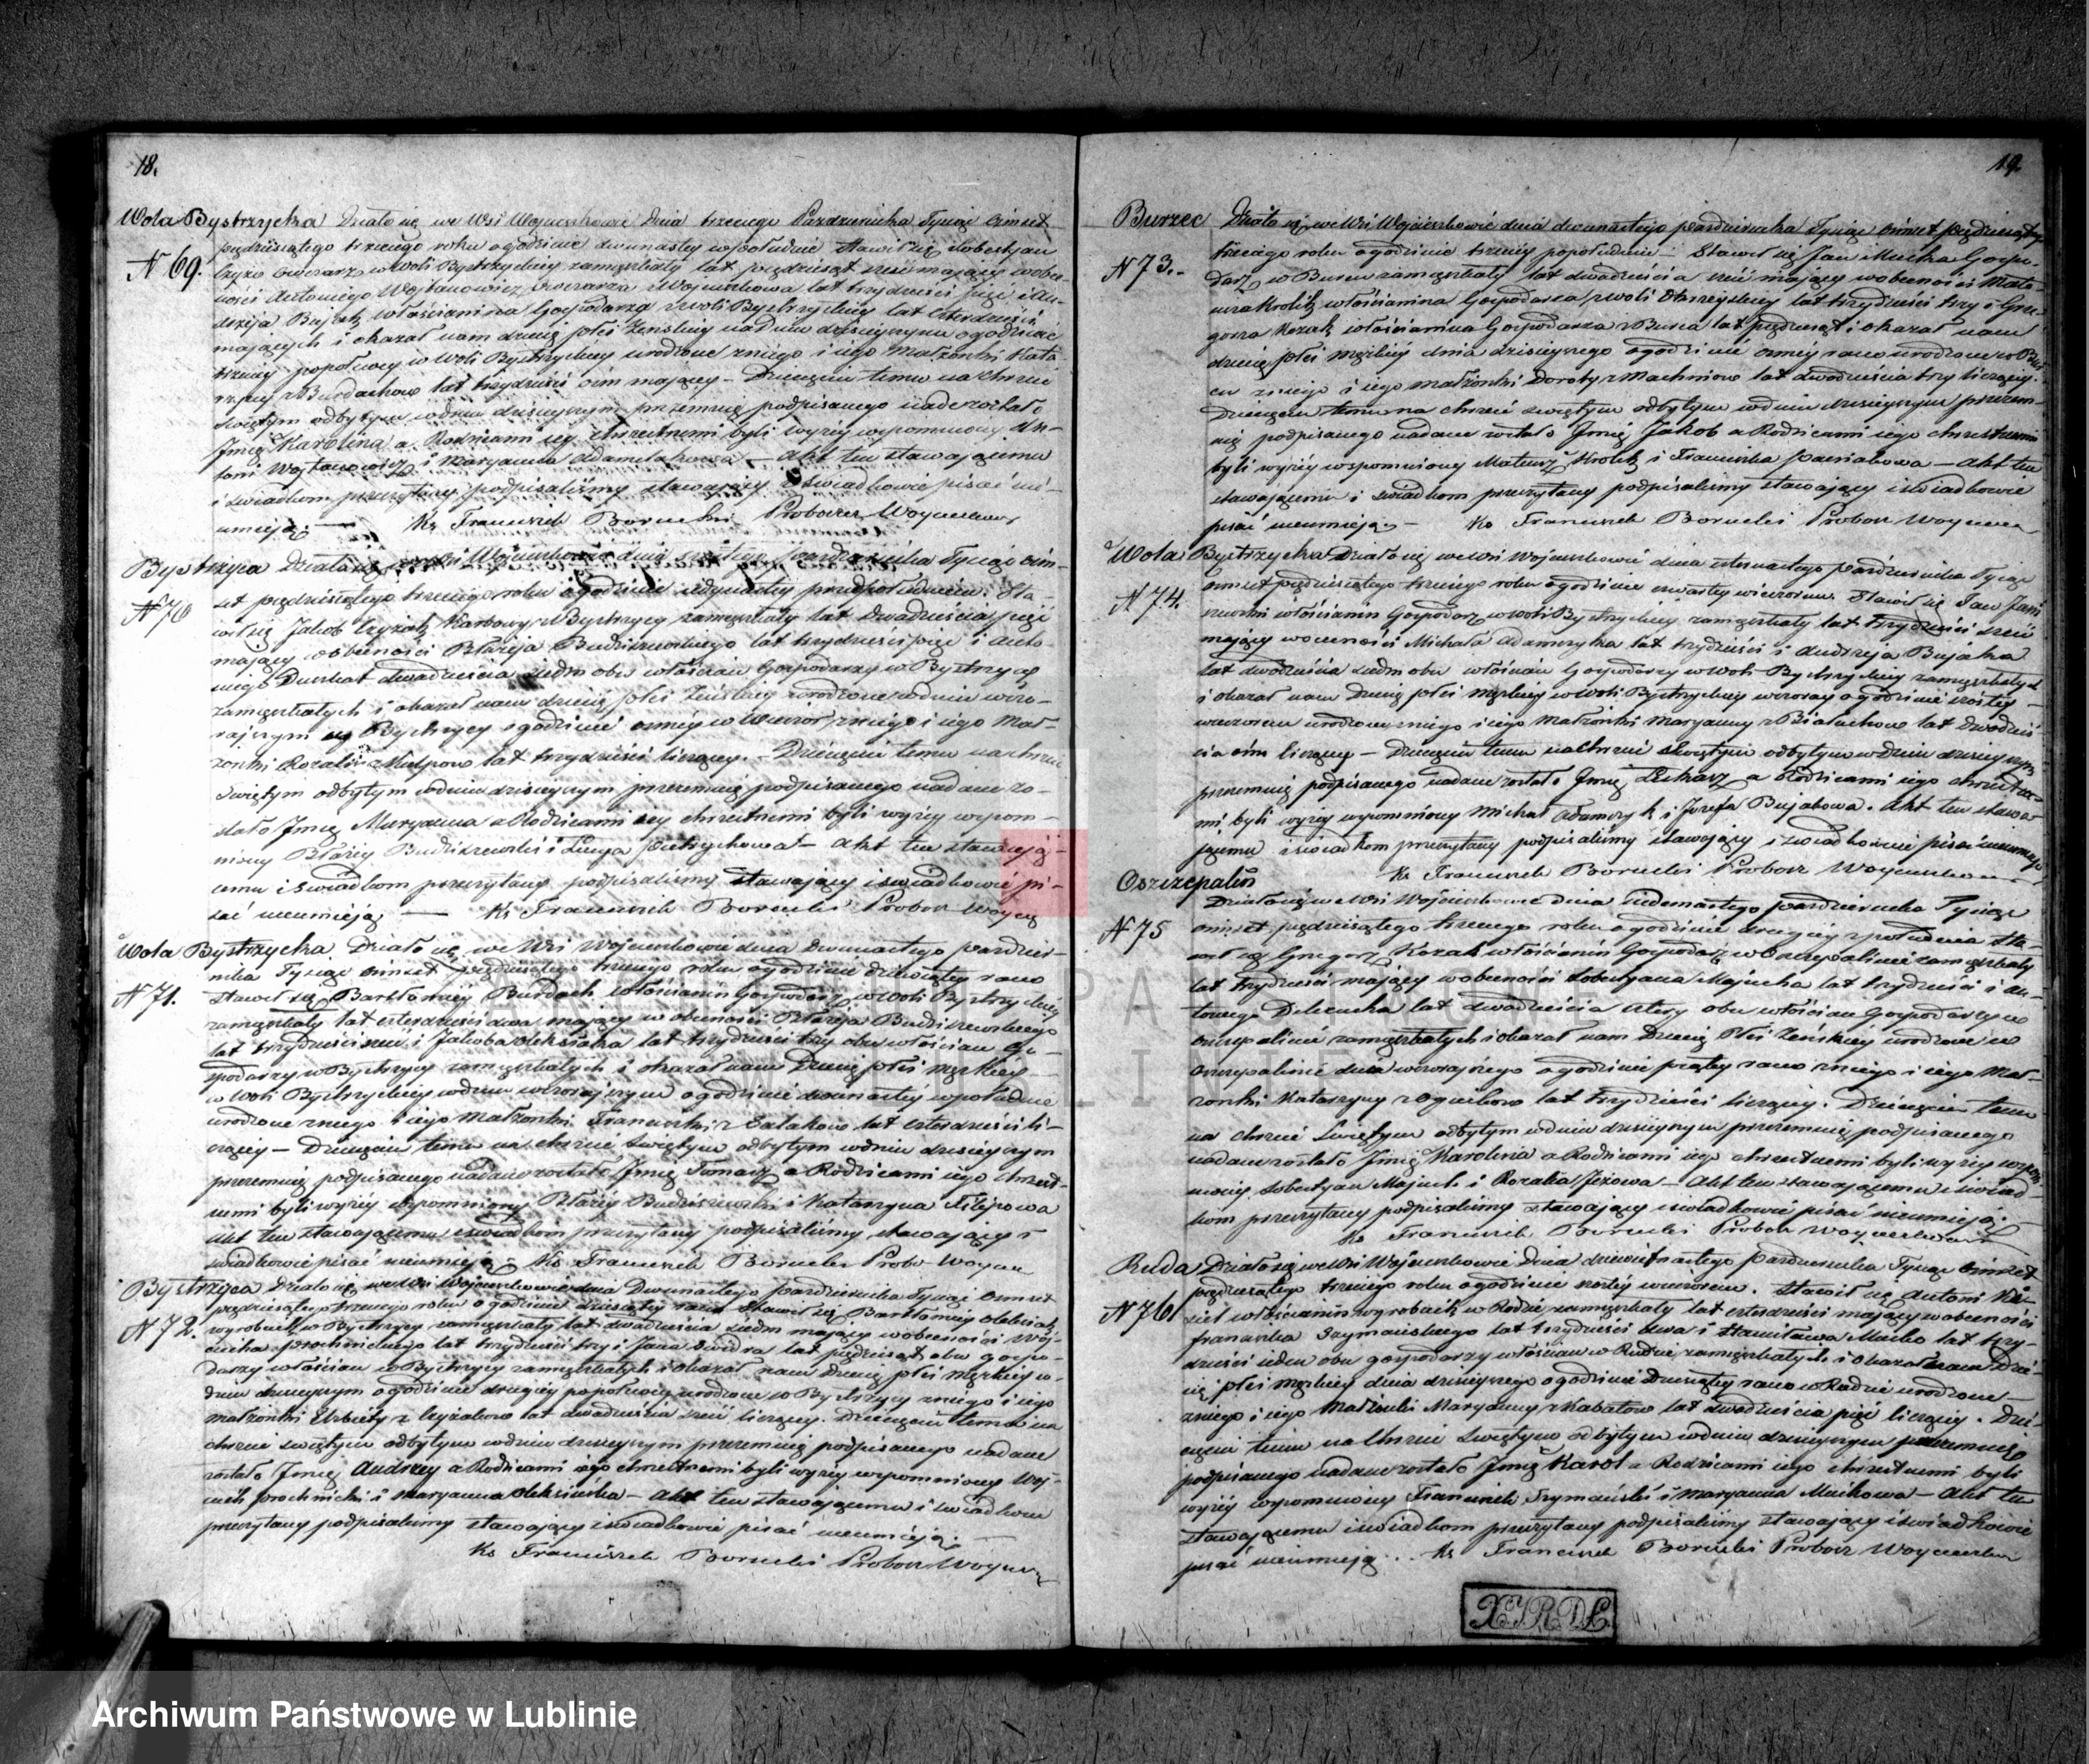 18.
Wola Bystrzycka Działo się we Wsi Wojcieszkowie Dnia trzeciego Pazdziernika Tysiąc Ośmset
pięćdziesiątego trzeciego roku o godzinie dwunastey w południe stawił się Sobestyan
N 69. Czyżo owczarz w Woli Bystrzyckiey zamięszkały lat pięćdziesiąt sześć maiący w obec-
ności Antoniego Woytanowicz owczarza z Wojcieszkowa lat trzydzieści pięć i An-
drzeja Bujak włościanina Gospodarza z Woli Bystrzyckiey lat czterdzieści
maiących i okazał nam dziecię płci Żeńskiey na Dniu dzisieyszym o godzinie
trzeciey popołnocy w Woli Bystrzyckiey urodzone z niego i iego Małżonki Kata-
rzyny z Burdachow lat trzydzieści ośm maiącey – Dziecięciu temu na chrzcie
Świętym odbytym w dniu dzisieyszym przezemnię podpisanego nadane zostało
Imię Karolina a Rodzicami iey chrzestnemi byli wyżey wspomniony An-
toni Woytanowicz i Maryanna Adamiakowa – Akt ten stawaiącemu
i świadkom przeczytany podpisaliśmy stawaiący i świadkowie pisać nie-
umieią. — Ks Franciszek Borucki Proboszcz Woycieszkow
Bystrzyca Działo się we Wsi Wojcieszkowie dnia szóstego Pazdziernika Tysiąc Ośm-
set pięćdziesiątego trzeciego roku o godzinie iedynastey przedpołudniem. Sta-
N 70 wił się Jakob Czyżak Karbowy z Bystrzycy zamięszkały lat Dwadzieścia pięć
maiący w obecności Błażeja Budziszewskiego lat trzydzieści pięć i Anto-
niego dwadzieścia siedm obu włościan Gospodarzy w Bystrzycy
zamięszkałych i okazał nam dziecię płci Żeńskiey urodzone w dniu wczo-
rajszym w Bystrzycy o godzinie osmey w Wieczór z niego i iego Mał-
żonki Rozalii z Kulpow lat trzydzieści liczącey. – Dziecięciu temu na chrzcie
Świętym odbytym w dniu dzisieyszym przezemnię podpisanego nadane zo-
stało Imię Maryanna a Rodzicami iey chrzestnemi byli wyżey wspom-
niony Błażey Budziszewski i Łucya Pietrychowa – Akt ten stawaią-
cemu i świadkom przeczytany podpisaliśmy stawaiący i świadkowie pi-
sać nieumieią — Ks Franciszek Borucki Probosz Woyciesz
Wola Bystrzycka. Działo się we Wsi Wojcieszkowie dnia Dwunastego Pazdzier-
nika Tysiąc Ośmset pięćdziesiątego trzeciego roku o godzinie dziewiątey rano
N 71. Stawił się Bartłomiey Burdach włościanin Gospodarz w Woli Bystrzyckiey
zamięszkały lat czterdzieści dwa maiący w obecności Błażeja Budziszewskiego
lat trzydzieści sześć i Jakoba Oleksiuka lat trzydzieści trzy obu włościan Go-
spodarzy w Bystrzycy zamięszkałych i okazał nam Dziecię płci męzkiey
w Woli Bystrzyckiey w dniu wczorajszym o godzinie dwunastey w południe
urodzone z niego i iego Małżonki Franciszki z Sałakow lat czterdzieści li-
czącey – Dziecięciu temu na chrzcie Świętym odbytym w dniu dzisieyszym
przezemnię podpisanego nadane zostało Imię Tomasz a Rodzicami iego chrzest-
nemi byli wyżey wspomniony Błażey Budziszewski i Katarzyna Filipowa
Akt ten stawaiącemu i świadkom przeczytany podpisaliśmy stawaiący i
świadkowie pisać nieumieią Ks Franciszek Borucki Probo Woycies
Bystrzyca Działo się we Wsi Wojcieszkowie dnia Dwunastego Pazdziernika Tysiąc Ośmset
pięćdziesiątego trzeciego roku o godzinie dziesiątey rano stawił się Bartłomiey Oleksiak
N 72. wyrobnik w Bystrzycy zamięszkały lat dwadzieścia siedm maiący w obecności Woy-
ciecha Prochnickiego lat trzydzieści trzy i Jana Swidra lat pięćdziesiąt obu gospo-
darzy włościan w Bystrzycy zamięszkałych i okazał nam Dziecię płci męzkiey w
dniu dzisieyszym o godzinie drugiey popołnocy urodzone w Bystrzycy z niego i iego
małżonki Elżbiety z Czyżakow lat dwadzieścia sześć liczącey. Dziecięciu temu na
chrzcie świętym odbytym w dniu dzisieyszym przezemnię podpisanego nadane
zostało Imię Andrzey a Rodzicami iego chrzestnemi byli wyżey wspomniony Woy-
ciech Prochnicki i Maryanna Oleksiuka – Akt ten stawaiącemu i świadkom
przeczytany podpisaliśmy stawaiący i świadkowie pisać nieumieią. —
Ks Franciszek Borucki Probosz Woyciesz
19.
Burzec Działo się we Wsi Wojcieszkowie dnia dwunastego Pazdziernika Tysiąc Ośmset pięćdziesiątego
trzeciego roku o godzinie trzeciey popołudniu – Stawił się Jan Mucha Gospo-
N 73.- darz w Burcu zamięszkały lat dwadzieścia sześć maiący w obecności Mate-
usza Krolik włościanina Gospodarza z Woli Okrzeyskiey lat trzydzieści trzy i Grze-
gorza Kozak włościanina Gospodarza z Burca lat pięćdziesiąt i okazał nam
dziecię płci męzkiey dnia dzisieyszego o godzinie osmey rano urodzone w Bur-
cu z niego i iego małżonki Doroty z Machniow lat dwadzieścia trzy liczącey.
Dziecięciu temu na chrzcie świętym odbytym w dniu dzisieyszym przezem-
nię podpisanego nadane zostało Imię Jakob a Rodzicami iego chrzestnemi
byli wyżey wspomniony Mateusz Krolik i Franciszka – Akt ten
stawaiącemu i świadkom przeczytany podpisaliśmy stawaiący i świadkowie
pisać nieumieią – Ks Franciszek Borucki Probosz Woyciesz
Wola Bystrzycka Działo się we Wsi Wojcieszkowie dnia czternastego Pazdziernika Tysiąc
Ośmset pięćdziesiątego trzeciego roku o godzinie czwartey wieczorem. Stawił się Jan Jani-
N 74. szewski włościanin Gospodarz w Woli Bystrzyckiey zamięszkały lat trzydzieści sześć
maiący w obecności Michała Adamczyka lat trzydzieści i Andrzeja Bujaka
lat dwadzieścia siedm obu włościan Gospodarzy w Woli Bystrzyckiey zamięszkałych
i okazał nam Dziecię płci męzkiey w Woli Bystrzyckiey wczoray o godzinie szóstey
wieczorem urodzone z niego i iego małżonki Maryanny z Białachow lat Dwadzieś-
cia ośm liczącey – Dziecięciu temu na chrzcie Świętym odbytym w dniu dzisieyszym
przezemnię podpisanego nadane zostało Imię Łukasz a Rodzicami iego chrzestne-
mi byli wyżey wspomniony Michał Adamczyk i Jozefa Bujakowa. Akt ten stawa-
iącemu i świadkom przeczytany podpisaliśmy stawaiący i świadkowie pisać nieumieią
Ks Franciszek Borucki Probosz Woycieszkow
Oszczepalin
Działo się we Wsi Wojcieszkowie Dnia Siedemnastego Pazdziernika Tysiąc
N 75 Ośmset pięćdziesiątego trzeciego roku o godzinie drugiey z południa sta-
wił się Grzegorz Kozak włościanin Gospodarz w Oszczepalinie zamięszkały
lat trzydzieści maiący w obecności Sobestyana Majucha lat trzydzieści i An-
toniego lat dwadzieścia cztery obu włościan Gospodarzy w
Oszczepalinie zamięszkałych i okazał nam Dziecię Płci Żeńskiey urodzone w
Oszczepalinie dnia wczorajszego o godzinie piątey rano z niego i iego Mał-
żonki Katarzyny z lat trzydzieści liczącey. Dziecięciu temu
na chrzcie Świętym odbytym w dniu dzisieyszym przezemnię podpisanego
nadane zostało Imię Karolina a Rodzicami iey chrzestnemi byli wyżey wspom-
niony Sobestyan Majuch i Rozalia Jeżowa – Akt ten stawaiącemu i świad-
kom przeczytany podpisaliśmy stawaiący i świadkowie pisać nieumieią.
Ks Franciszek Borucki Probosz Woycieszkow
Ruda Działo się we Wsi Wojcieszkowie Dnia dziewiętnastego Pazdziernika Tysiąc Ośmset
pięćdziesiątego trzeciego roku o godzinie szóstey wieczorem. Stawił się Antoni
N 76 włościanin wyrobnik w Rudzie zamięszkały lat czterdzieści maiący w obecności
Franciszka Szymańskiego lat trzydzieści dwa i Stanisława Mucho lat trzy-
dzieści ieden obu gospodarzy włościan w Rudzie zamięszkałych i okazał nam Dzie-
cię płci męzkiey dnia dzisieyszego o godzinie Dziesiątey rano w Rudzie urodzone
z niego i iego Małżonki Maryanny z Kabatow lat dwadzieścia pięć liczącey. Dzie-
cięciu temu na Chrzcie Świętym odbytym w dniu dzisieyszym przezemnię
podpisanego nadane zostało Imię Karol a Rodzicami iego chrzestnemi byli
wyżey wspomniony Franciszek Szymański i Maryanna Muchowa – Akt ten
stawaiącemu i świadkom przeczytany podpisaliśmy stawaiący i świadkowie
pisać nieumieią... Ks Franciszek Borucki Probosz Woycieszkow
XJRDL
Archiwum Państwowe w Lublinie